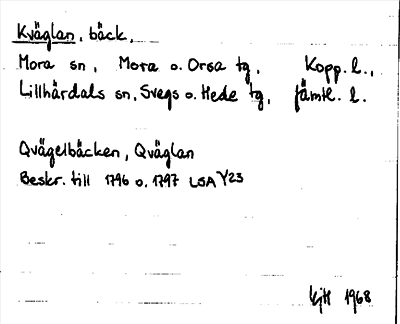 Kväglan, bäck,
Mora sn, Mora o. Orsa tg, Kopp. l.,
Lillhärdals sn, Svegs o. Hede tg, Jämtl. l.
Qvägelbäcken, Qväglan
Beskr. till 1796 o. 1797 LSA Y23
1968